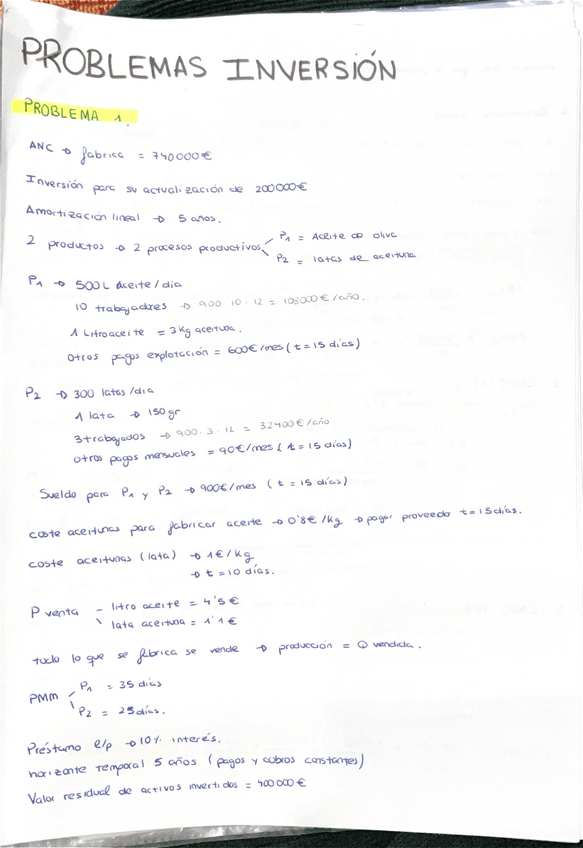 PROBLEMAS INVERSIÓN
PROBLEMA 1.
ANC → fabrica = 740000€
Inversión para su actualización de 200000€
Amortización lineal → 5 años.
2 productos → 2 procesos productivos P1 = Aceite de oliva
P2 = latas de aceituna
P1 → 500L Aceite/dia
10 trabajadores → 900·10·12 = 108000€/año.
1 Litro aceite = 3Kg aceituna.
Otros pagos explotación = 600€/mes (t = 15 días)
P2 → 300 latas/dia
1 lata → 150gr
3 trabajados → 900·3·12 = 32400€/año
otros pagos mensuales = 90€/mes (t = 15 días)
Sueldo para P1 y P2 → 900€/mes (t = 15 días)
coste aceitunas para fabricar aceite → 0'8€/kg → pagar proveedor t = 15 días.
coste aceitunas (lata) → 1€/kg
→ t = 10 días.
P venta - litro aceite = 4'5€
\ lata aceituna = 1'1€
todo lo que se fabrica se vende → producción = Q vendida.
PMM P1 = 35 días
P2 = 25 días.
Préstamo e/p → 10% interés.
horizonte temporal 5 años (pagos y cobros constantes)
Valor residual de activos invertidos = 400000€